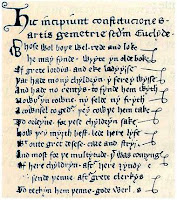 Hic incipiunt constituciones
artis gemetrie secundum Euclyde
Whose wol boþe wel rede and loke
He may fynde wryte yn olde boke
Of grete lordys and eke ladyysse
Þat hade mony chyldryn y fere ywysse
And hade no rentys to fynde hem wyth
Nowþer yn towne ny felde ny fryth
A cownsel togeder þey cowþe hem take
To ordeyne for þese chyldryn sake
How þey myȝth best lede here lyfe
Withoute gret desese care and stryfe
And most for þe multytude þat was comynge
Of here chyldryn after here
They sende þenne after grete clerkys
To techyn hem þenne gode werkys